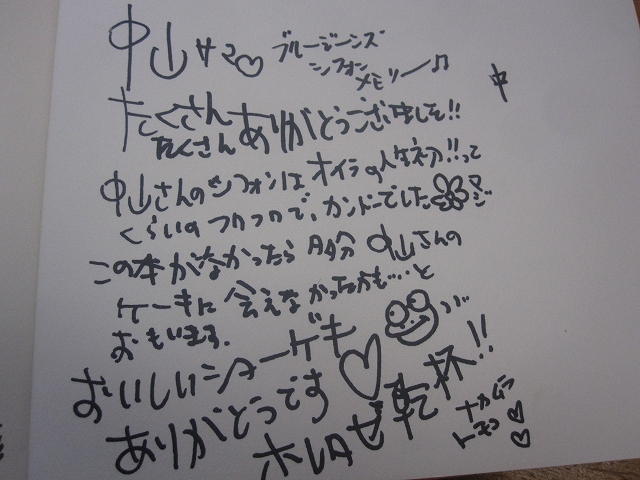 中山サマ♡ ブルージーンズ
シフォン
メモリー♫
中
たくさん ありがとうございました!!
たくさん
中山さんのシフォンは オイラの人生初!!って
くらいの フワフワで、カンドーでした マジ
この本がなかったら 多分 中山さんの
ケーキに 会えなかったかも…と
おもいます。
おいしいシターゲキ
ありがとうです♡
ホレタゼ 乾杯!!
ナカムラ
トモコ♡♡